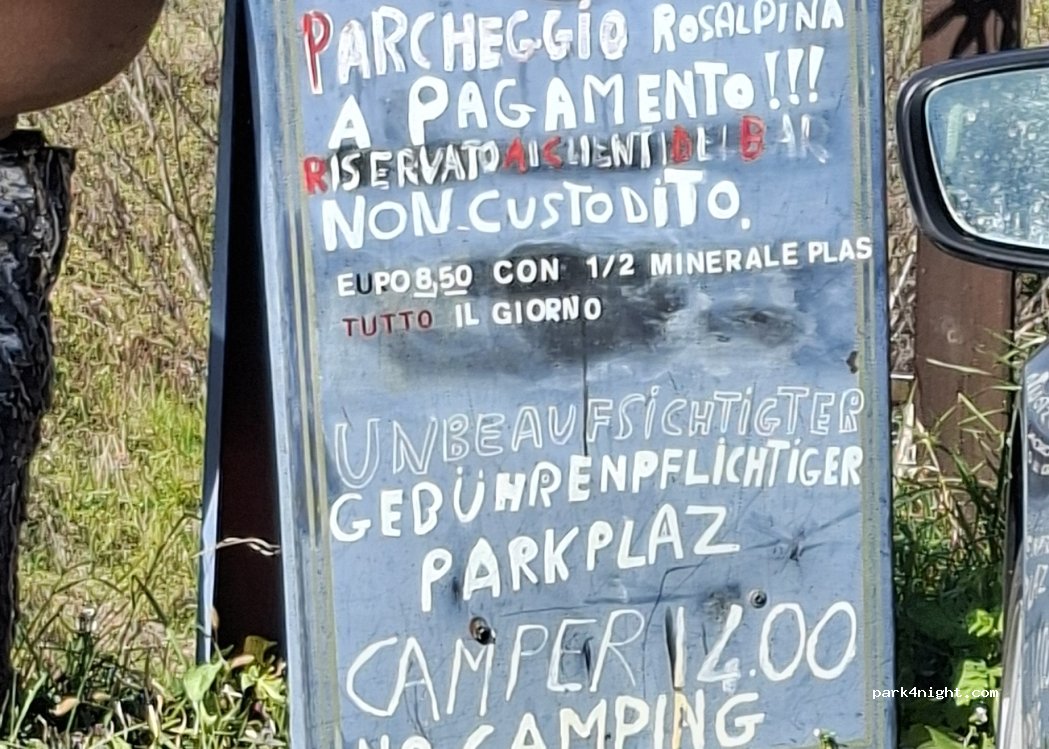 PARCHEGGIO ROSALPINA
A PAGAMENTO!!!
RISERVATO AI CLIENTI DEL BAR
NON CUSTODITO.
EUPO 8,50 CON 1/2 MINERALE PLAS
TUTTO IL GIORNO
UNBEAUFSICHTIGTER
GEBÜHRENPFLICHTIGER
PARKPLAZ
CAMPER 14.00
NO CAMPING
park4night.com